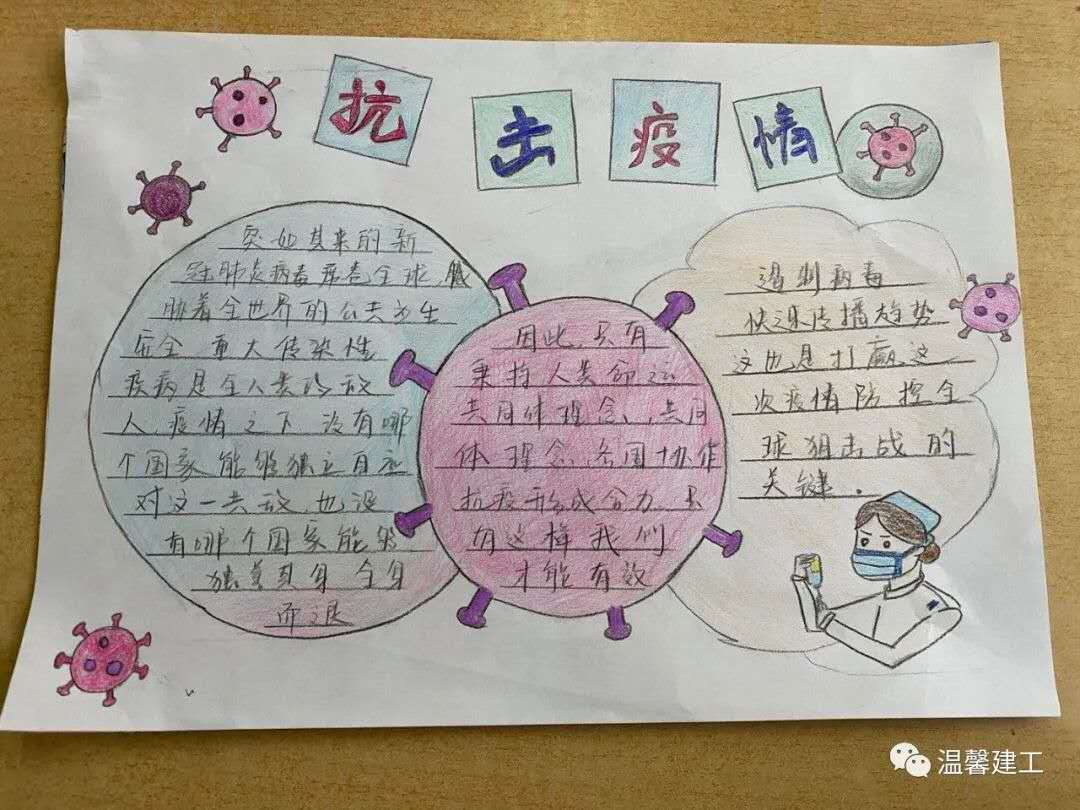 抗击疫情
突如其来的新
冠肺炎病毒席卷全球,威
胁着全世界的公共卫生
安全 重大传染性
疾病是全人类的敌
人,疫情之下 没有哪
个国家能够独立自应
对这一共敌,也没
有哪个国家能够
独善其身 全身
而退
因此,只有
秉持人类命运
共同体理念,共同
体理念,各国协作
抗疫形成合力 只
有这样我们
才能有效
遏制病毒
快速传播趋势
这也是打赢这
次疫情防控全
球狙击战的
关键。
温馨建工